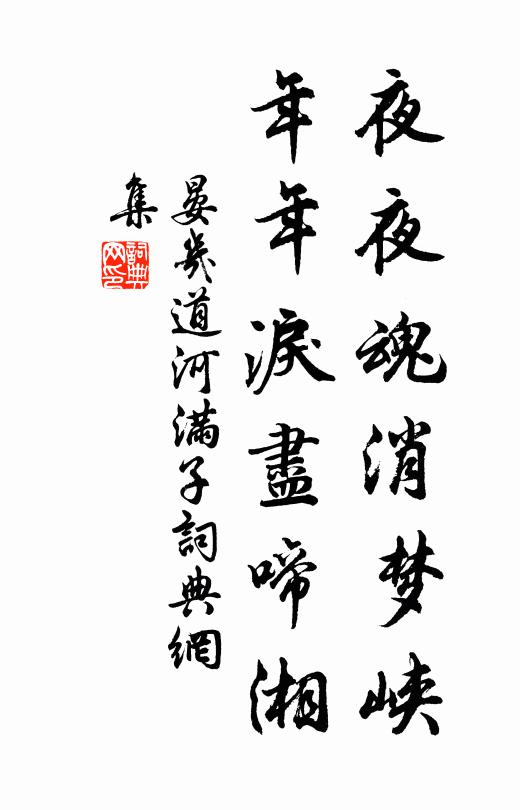 夜夜魂消梦峡
年年淚盡啼湘
晏幾道河滿子詞典網
集
詞典网印